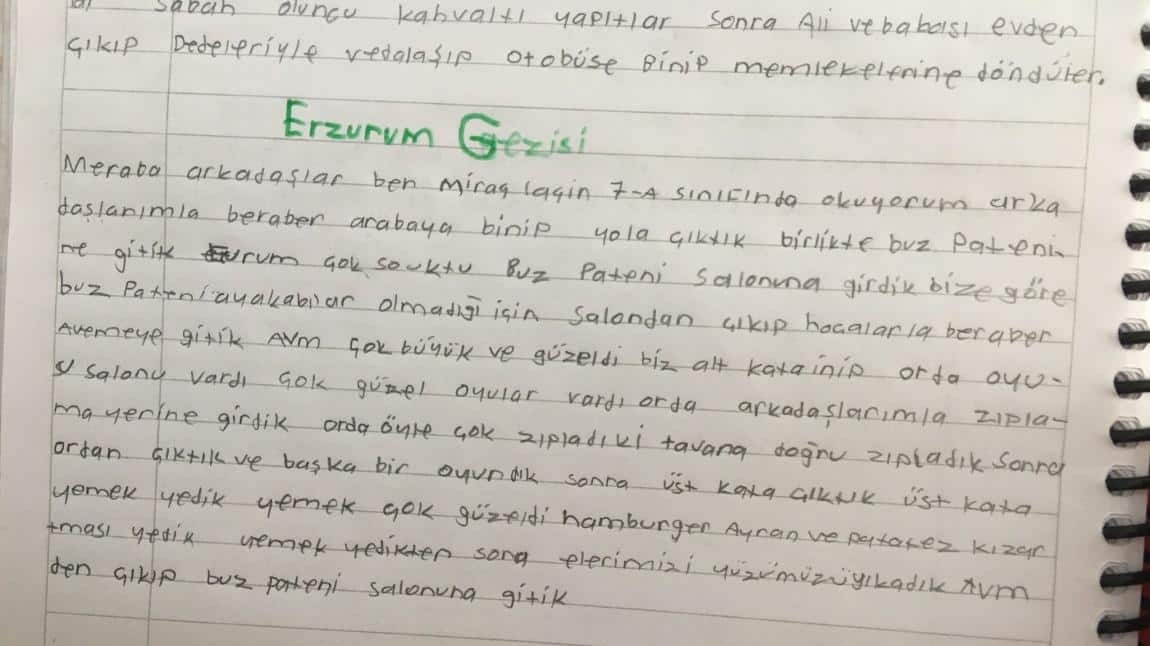 Sabah oluncu kahvaltı yapıtlar sonra Ali ve babası evden
çıkıp Dedeleriyle vedalaşıp otobüse Binip memlekelerine döndüler.
Erzurum Gezisi
Meraba arkadaşlar ben miraç laçin 7-A sınıfında okuyorum arka
daşlarımla beraber arabaya binip yola çıktık birlikte buz Pateni-
ne gitik çok souktu Buz Pateni Salonuna girdik bize göre
buz Pateni ayakabılar olmadığı için Salondan çıkıp hocalarla beraber
Avemeye gitik AVM çok büyük ve güzeldi biz alt kata inip orda oyu-
salonu vardı çok güzel oyular vardı orda arkadaşlarımla zıpla-
ma yerine girdik orda öyle çok zıpladıki tavana doğru zıpladık Sonra
ordan çıktık ve başka bir oyundık sonra üst kata çıktık üst kata
yemek yedik yemek çok güzeldi hamburger Ayran ve patatez kızar
tması yedik yemek yedikten sona elerimizi yüzümüzü yıkadık AVM
den çıkıp buz pateni salonuna gitik